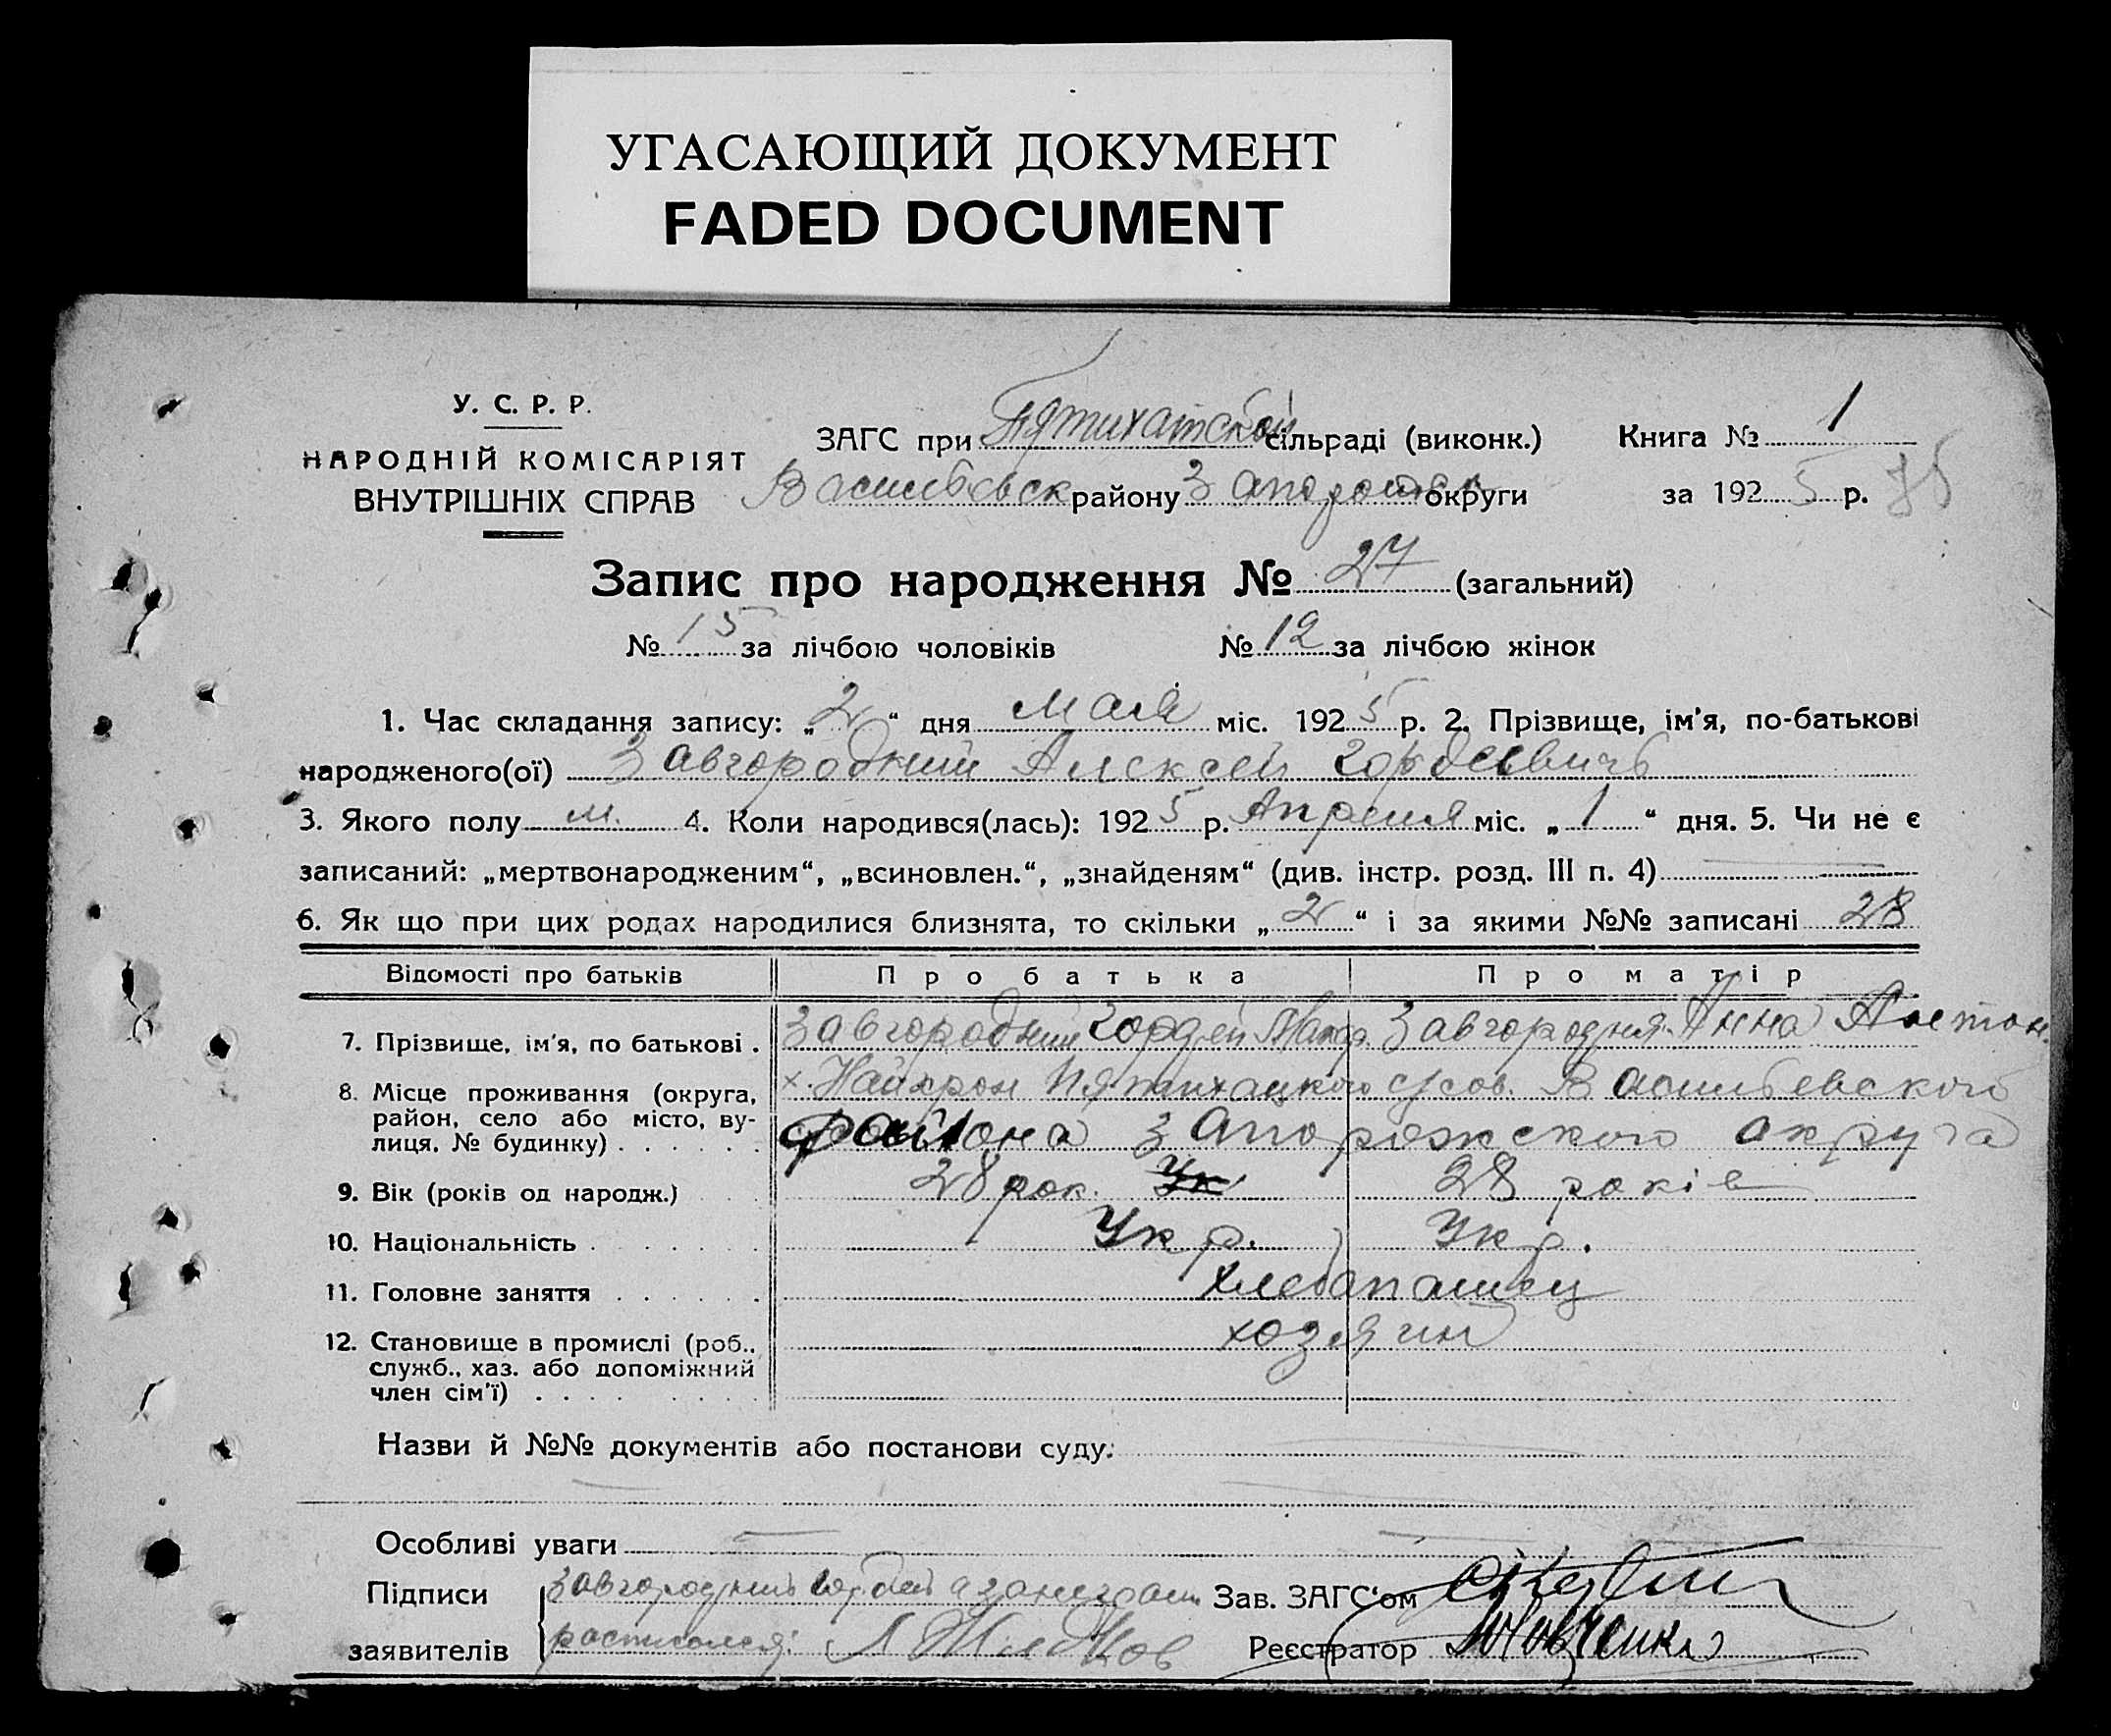 УГАСАЮЩИЙ ДОКУМЕНТ
FADED DOCUMENT
У. С. Р. Р.
НАРОДНІЙ КОМІСАРІЯТ
ВНУТРІШНІХ СПРАВ
ЗАГС при Пятихатской сільраді (виконк.) Книга № 1
Васильевск району Запорожск округи за 1925 р. 75
Запис про народження № 27 (загальний)
№ 15 за лічбою чоловіків № 12 за лічбою жінок
1. Час складання запису: „2“ дня Мая міс. 1925 р. 2. Прізвище, ім'я, по-батькові
народженого(ої) Завгородний Алексей Гордеевичь
3. Якого полу м. 4. Коли народився(лась): 1925 р. Апреля міс. „1“ дня. 5. Чи не є
записаний: „мертвонародженим“, „всиновлен.“, „знайденям“ (див. інстр. розд. III п. 4)
6. Як що при цих родах народилися близнята, то скільки „2“ і за якими №№ записані 28
Відомості про батьків Про батька Про матір
7. Прізвище, ім'я, по батькові . Завгородний Гордей Завгородня Анна
8. Місце проживання (округа, х. Пятихацкого Васильевского
район, село або місто, ву-
лиця, № будинку) . . . . . . района Запорожского округа
9. Вік (років од народж.) 28 рок. Ук 28 років
10. Національність . . . . . . Укр. Укр.
11. Головне заняття . . . . . хлебапашец
12. Становище в промислі (роб., хозяин
служб., хаз. або допоміжний
член сім'ї) . . . .
Назви й №№ документів або постанови суду:
Особливі уваги
Підписи Завгородний Гордей Зав. ЗАГС'ом
заявителів Реєстратор